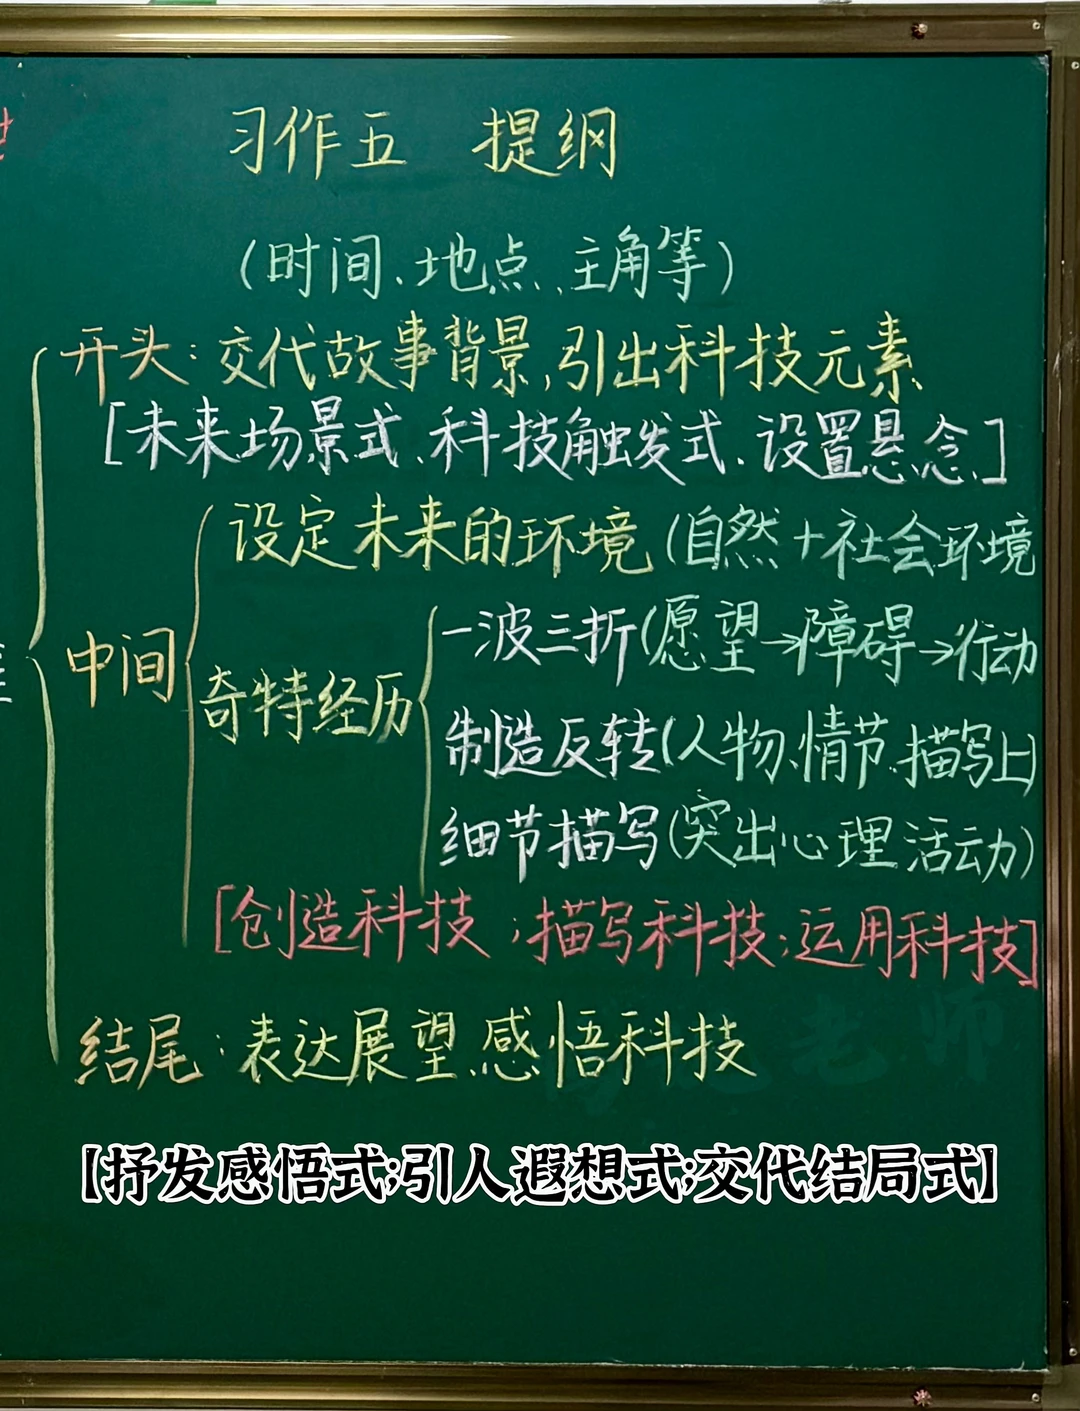 习作五 提纲
(时间、地点、主角等)
开头:交代故事背景,引出科技元素
[未来场景式、科技触发式、设置悬念]
设定未来的环境(自然+社会环境
中间
奇特经历
一波三折(愿望→障碍→行动
制造反转(人物、情节、描写上)
细节描写(突出心理活动)
[创造科技;描写科技;运用科技]
结尾:表达展望、感悟科技
【抒发感悟式;引人遐想式;交代结局式】
老师